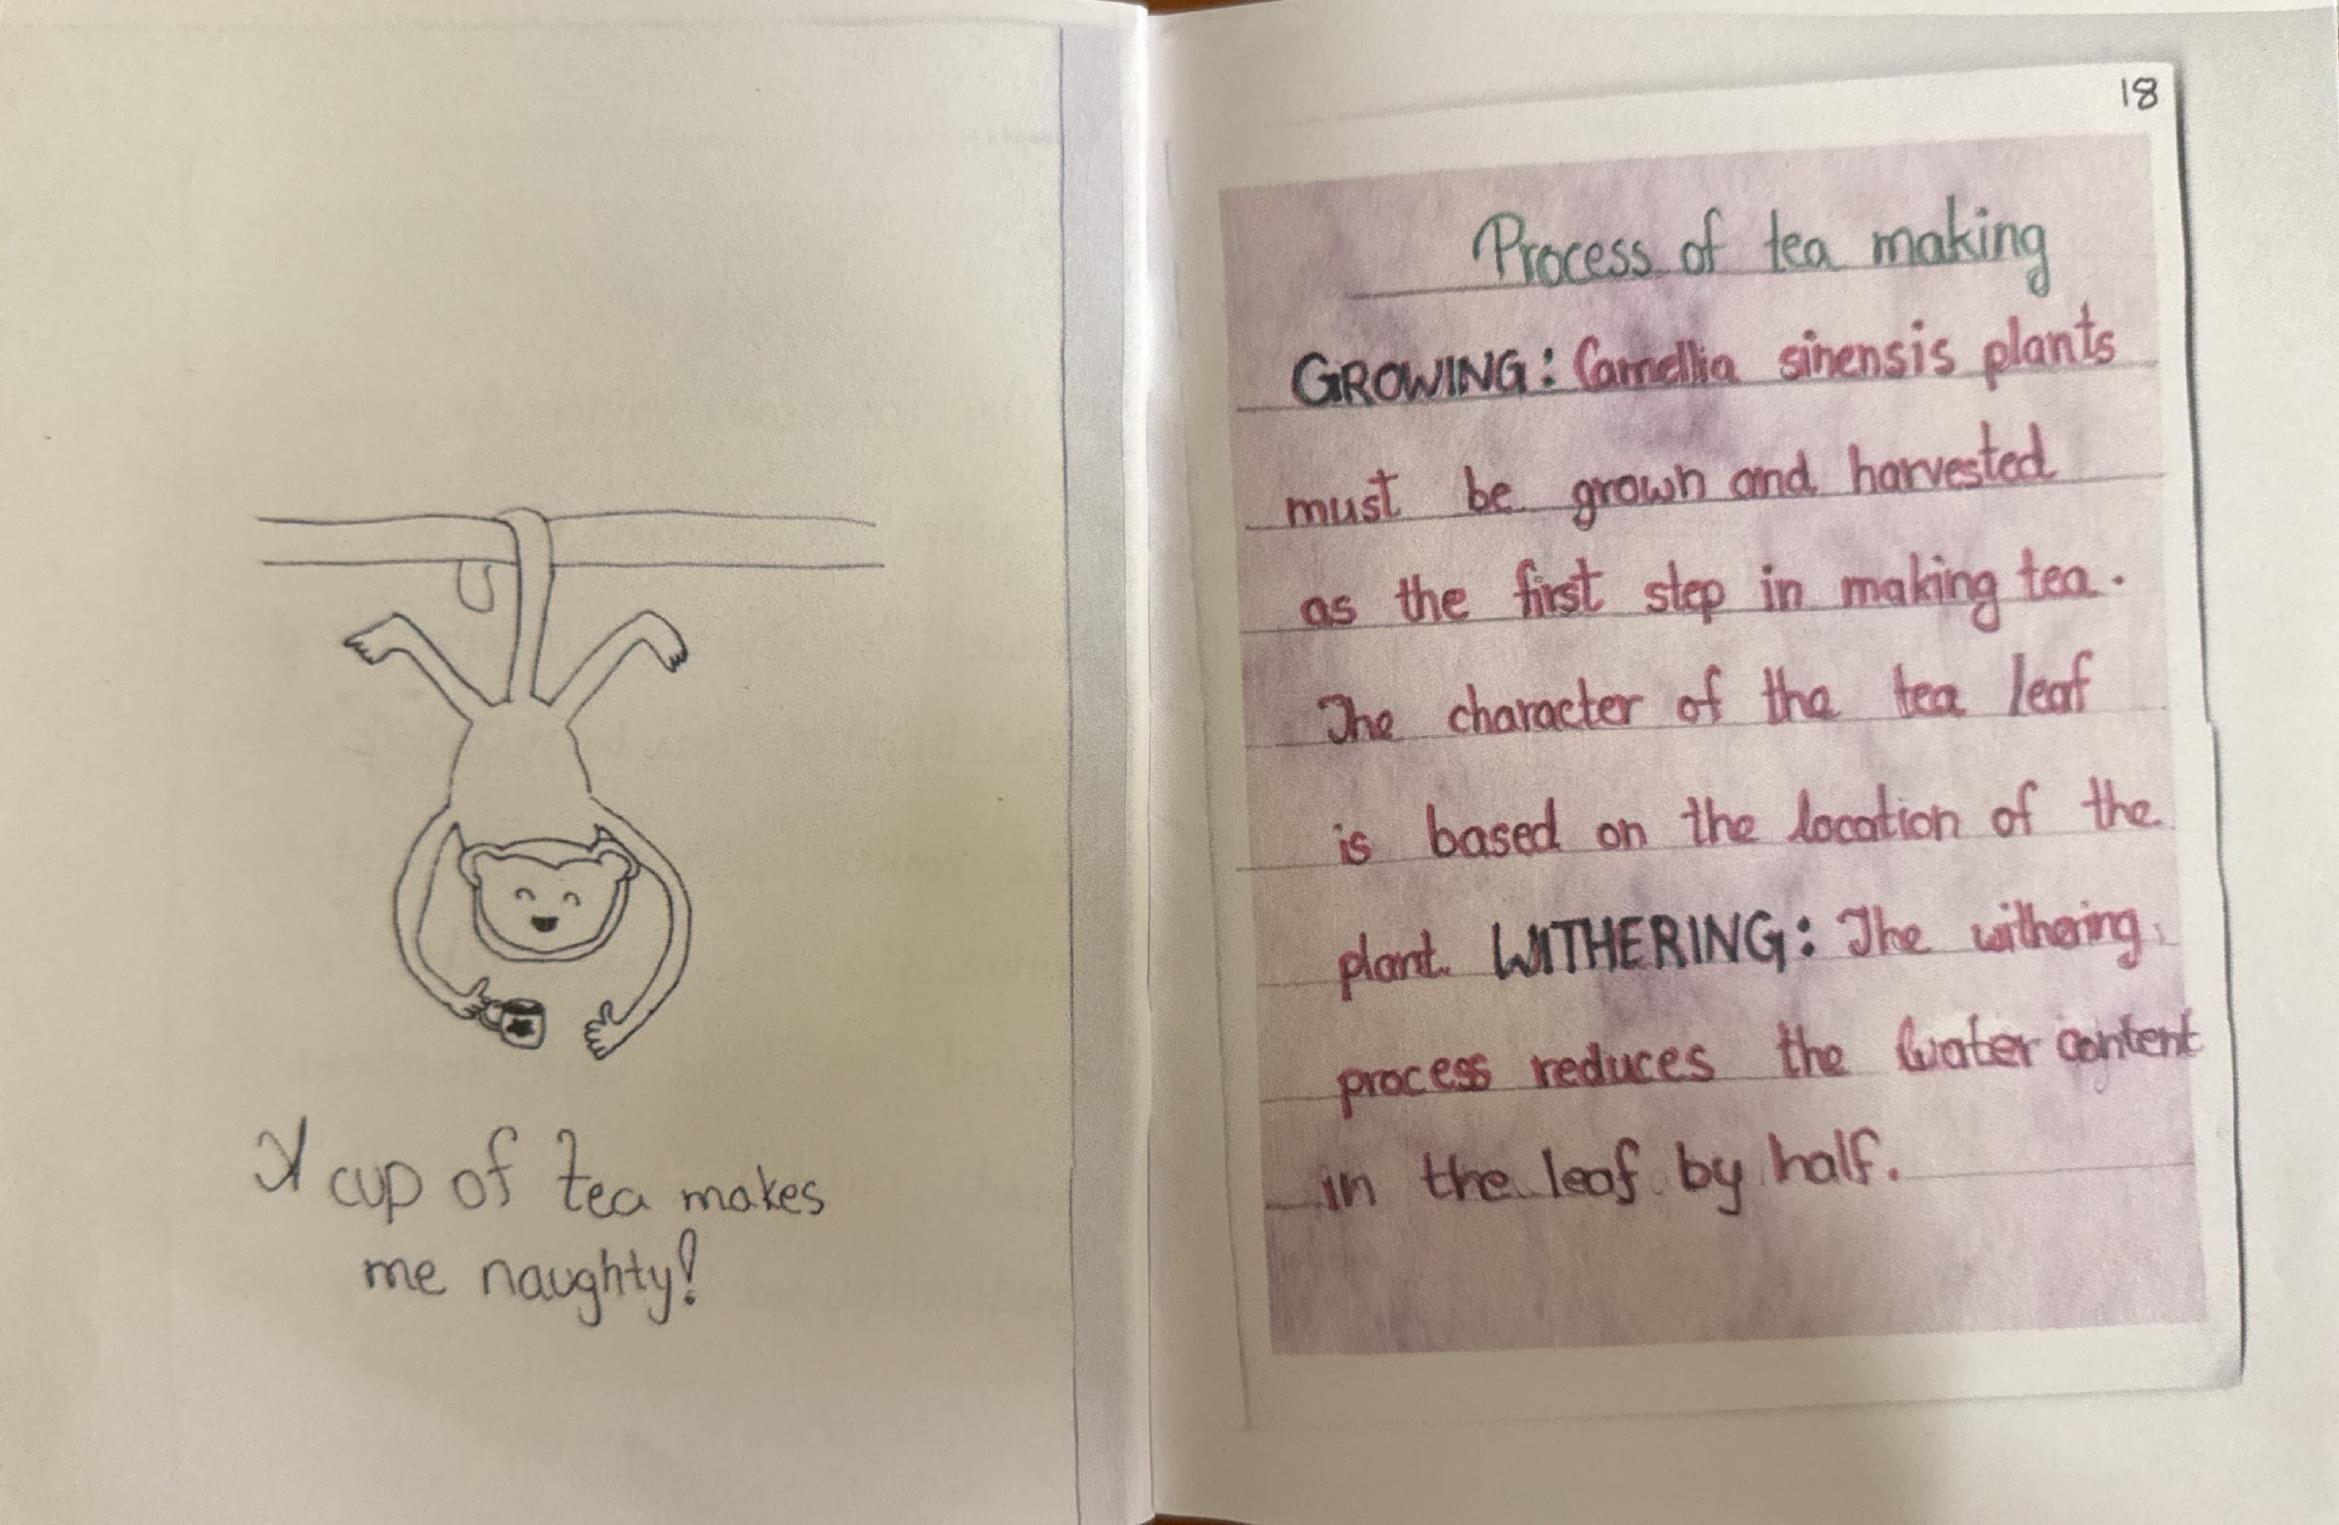 A cup of tea makes
me naughty!
18
Process of tea making
GROWING: Camellia sinensis plants
must be grown and harvested
as the first step in making tea.
The character of the tea leaf
is based on the location of the
plant. WITHERING: The withering
process reduces the water content
in the leaf by half.